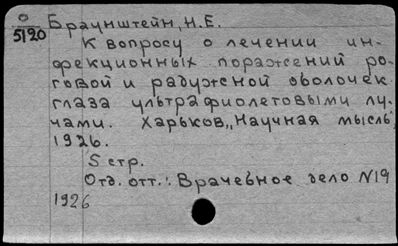 О
5120
Браунштейн, Н.Е.
К вопросу о лечении ин-
фекционных поражений ро-
говой и радужной оболочек
глаза ультрафиолетовыми лу-
чами. Харьков, „Научная мысль",
1926.
5 стр.
Отд. отт.: Врачебное дело N19
1926